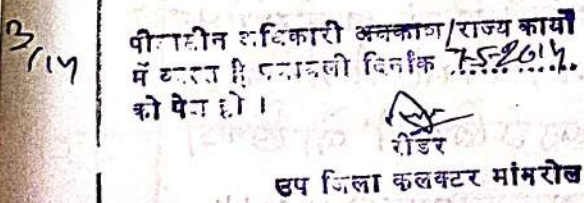 3/14
पीठासीन अधिकारी अवकाश/राज्य कार्यों
में व्यस्त है पत्रावली दिनांक 7-5-2014
को पेश हो ।
रीडर
उप जिला कलक्टर मांगरोल